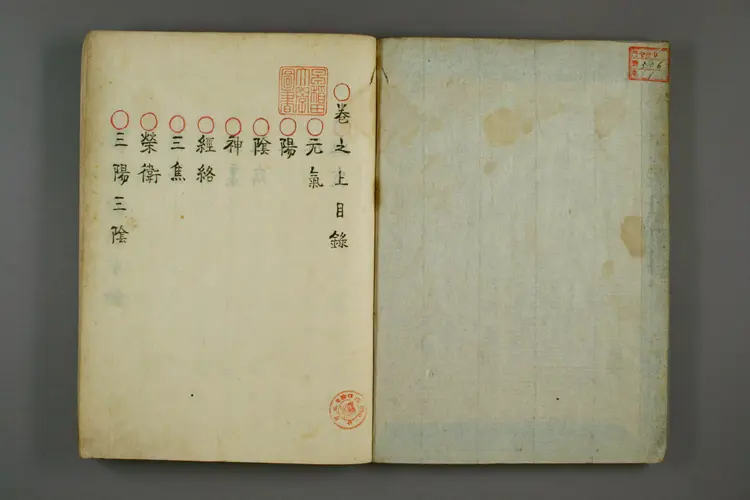 ○卷之上目錄
○元氣
○陽
○陰
○神
○經絡
○三焦
○榮衛
○三陽三陰